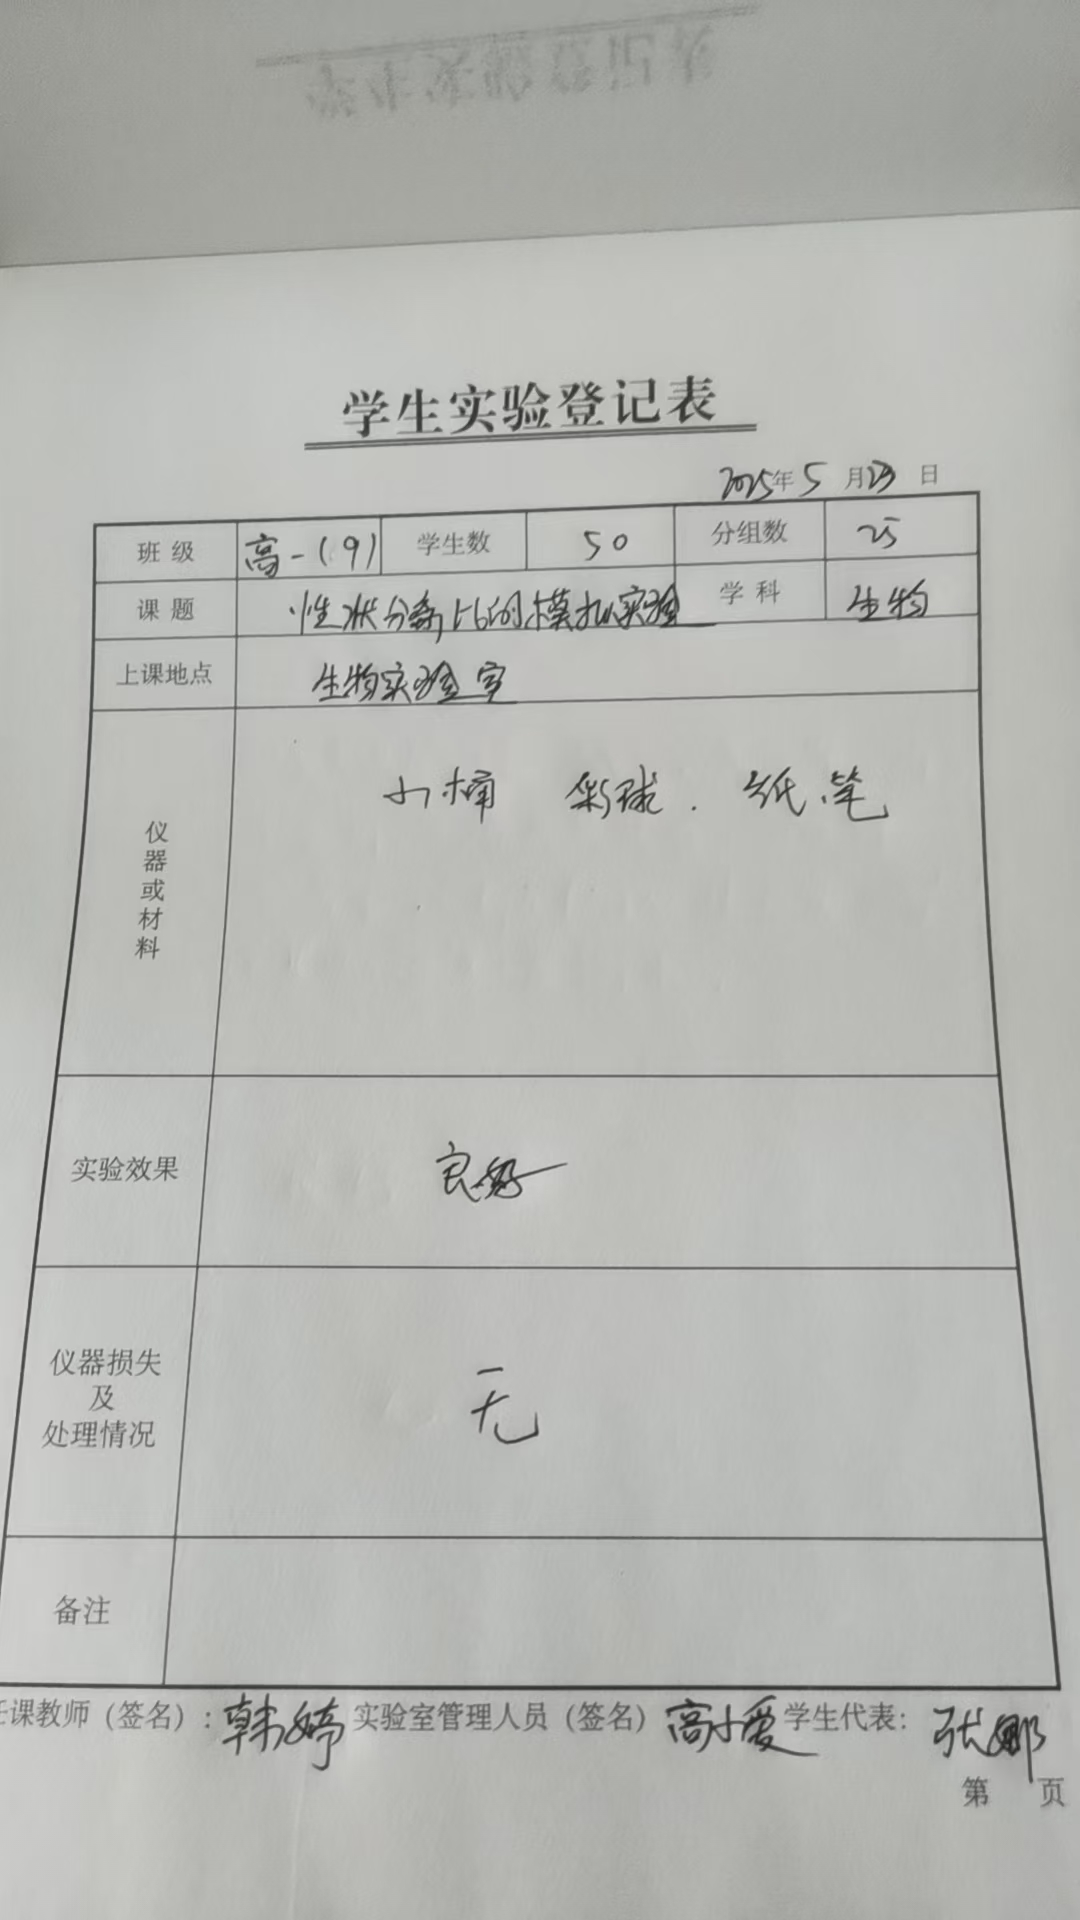 学生实验登记表
2025年5月23日
班级 高一(9) 学生数 50 分组数 25
课题 性状分离比的模拟实验 学科 生物
上课地点 生物实验室
仪器或材料 小桶 彩球. 纸、笔
实验效果 良好
仪器损失及处理情况 无
备注
任课教师（签名）: 韩婷 实验室管理人员（签名） 高小爱 学生代表: 张娜
第 页